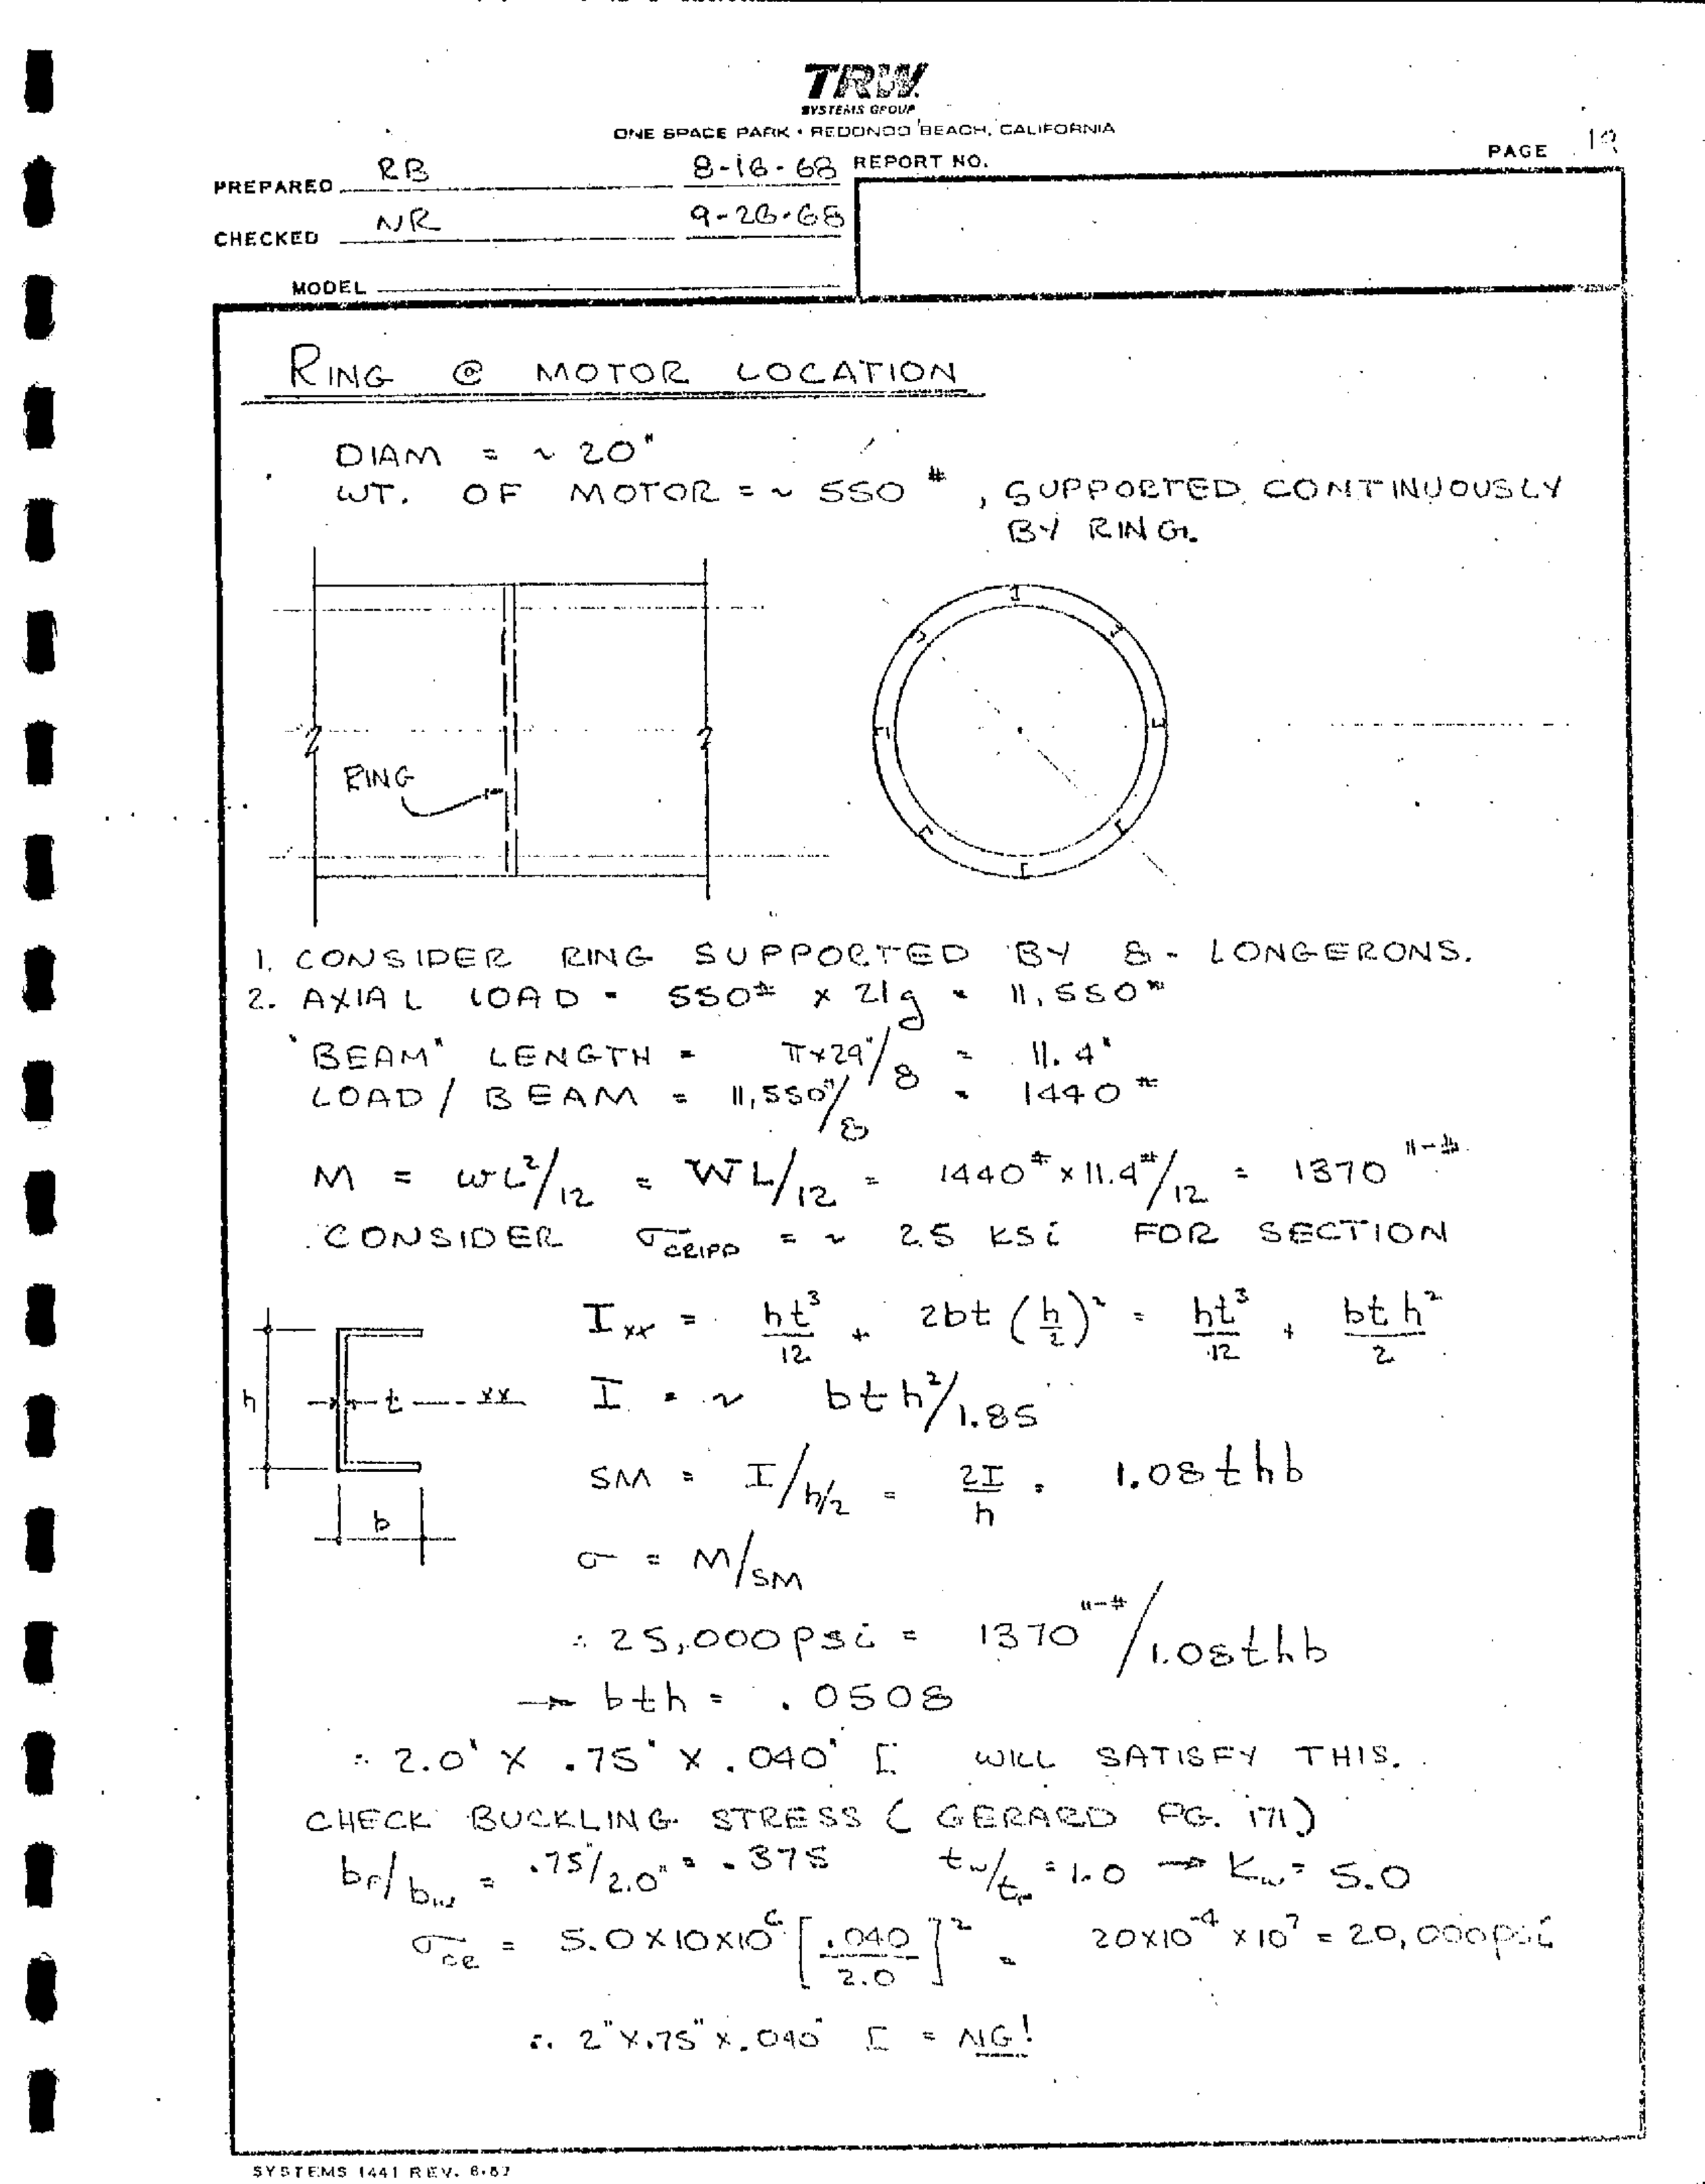 TRW
SYSTEMS GROUP
ONE SPACE PARK • REDONDO BEACH, CALIFORNIA
PREPARED RB 8-16-68 REPORT NO. PAGE 19
CHECKED NR 9-26-68
MODEL
RING @ MOTOR LOCATION
DIAM = ~ 20"
WT. OF MOTOR = ~ 550 #, SUPPORTED CONTINUOUSLY
BY RING.
RING
1. CONSIDER RING SUPPORTED BY 8 - LONGERONS.
2. AXIAL LOAD = 550# x 21g = 11,550#
"BEAM" LENGTH = π x 29"/8 = 11.4"
LOAD / BEAM = 11,550#/8 = 1440 #
M = wL²/12 = WL/12 = 1440# x 11.4"/12 = 1370 "-#
CONSIDER σCRIPP = ~ 25 KSi FOR SECTION
Ixx = ht³/12 + 2bt (h/2)² = ht³/12 + bth²/2
h t xx I = ~ bth²/1.85
SM = I/h/2 = 2I/h = 1.08thb
b
σ = M/SM
∴ 25,000psi = 1370"-#/1.08thb
→ bth = .0508
∴ 2.0" X .75" X .040" [ WILL SATISFY THIS.
CHECK BUCKLING STRESS (GERARD PG. 171)
bF/bw = .75"/2.0" = .375 tw/tF = 1.0 → Kw = 5.0
σCR = 5.0 X 10 X 10⁶ [.040/2.0]² = 20X10⁻⁴ X 10⁷ = 20,000psi
∴ 2" X .75" X .040" [ = NG!
SYSTEMS 1441 REV. 8-67